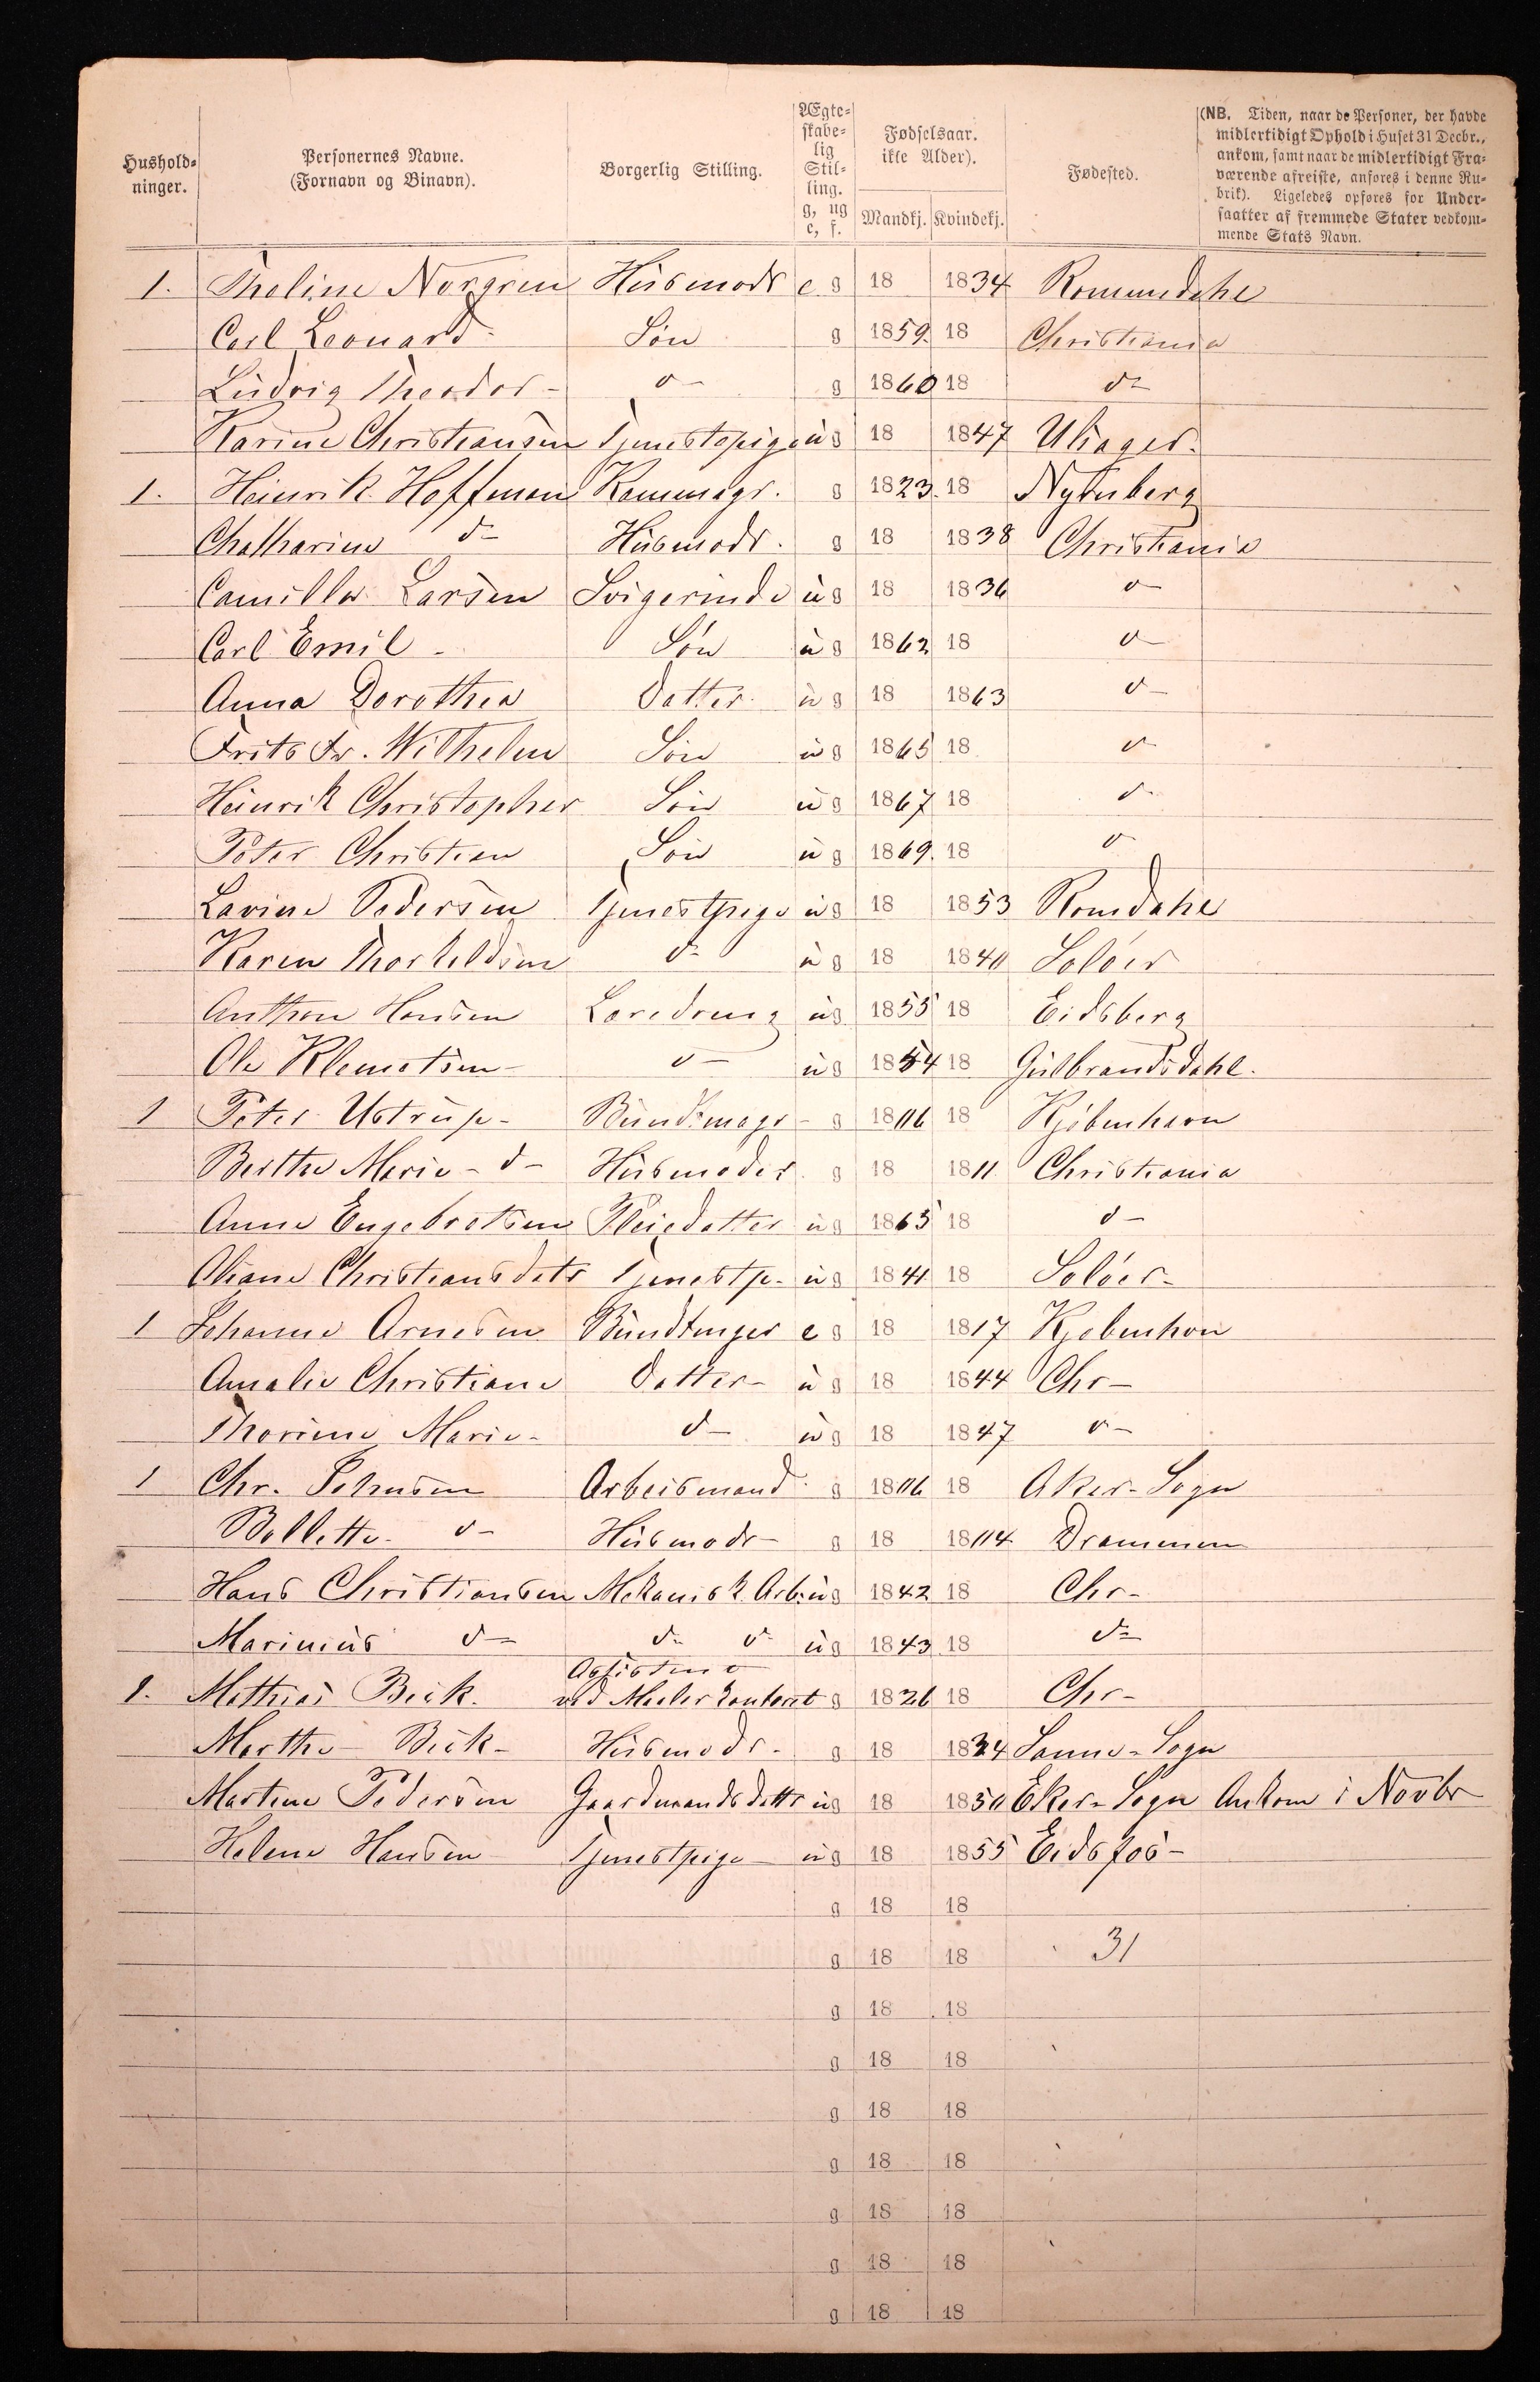 Hushold-
ninger.
Personernes Navne.
(Fornavn og Binavn).
Borgerlig Stilling.
Ægte-
skabe-
lig
Stil-
ling.
g, ug
e, f.
Fødselsaar.
ikke Alder).
Mandkj. Kvindekj.
Fødested.
(NB. Tiden, naar de Personer, der havde
midlertidigt Ophold i Huset 31 Decbr.,
ankom, samt naar de midlertidigt Fra-
værende afreiste, anføres i denne Ru-
brik). Ligeledes opføres for Under-
saatter af fremmede Stater vedkom-
mende Stats Navn.
1. Tholine Norgren Husmodr e g 18 1834 Romundahl
Carl Leonard- Søn g 1859. 18 Christiania
Ludvig Theodor- d- g 1860 18 d-
Karine Christiansen Tjenestepige ug 18 1847 Ulsager-
1. Heinrik Hoffman Kammagr. g 1823. 18 Nyrnberg
Chatharine d- Husmodr. g 18 1838 Christiania
Camilla Larsen Svigerinde ug 18 1836 d-
Carl Emil - Søn ug 1862 18 d-
Anna Dorothea Datter ug 18 1863 d-
Frits Fr. Wilhelm Søn ug 1865 18 d-
Heinrik Christopher Søn ug 1867 18 d-
Peter Christian Søn ug 1869. 18 d
Lavine Pedersen Tjenestpige ug 18 1853 Romdahl
Karen Thorkeldsen d- ug 18 1840 Soløer
Anthon Hansen Læredreng ug 1855 18 Eidsberg
Ole Klemetsen- d- ug 1854 18 Gulbrandsdahl.
1 Peter Ustrup- Bundtmagr- g 1806 18 Kjøbenhavn
Berthe Marie- d- Husmoder. g 18 1811 Christiania
Anne Engebretsen Pleiedatter ug 1865 18 d-
Oliane Christiansdatr Tjenestp- ug 1841 18 Soløer-
1 Johanne Arnesen Bundtmger e g 18 1817 Kjøbenhvn
Amalie Christiane Datter- ug 18 1844 Chr-
Thorine Marie- d- ug 18 1847 d-
1 Chr. Johnsen Arbeidsmand g 1806 18 Aker-Sogn
Bollette- d- Husmodr- g 18 1804 Drammen
Hans Christiansen Mekanisk Arb: ug 1842 18 Chr-
Marinius d- d- d- ug 1843 18 d-
Assistent
1. Mathias Beck. ved Mæler kontoret g 1826 18 Chr-
Marthe- Beck- Husmodr- g 18 1834 Sanne-Sogn
Martine Pedersen Gaardmandsdattr ug 18 1850 Eker-Sogn Ankom i Novbr
Helene Hansen Tjenestpige- ug 18 1855 Eidsfos-
g 18 18
g 18 18 31
g 18 18
g 18 18
g 18 18
g 18 18
g 18 18
g 18 18
g 18 18